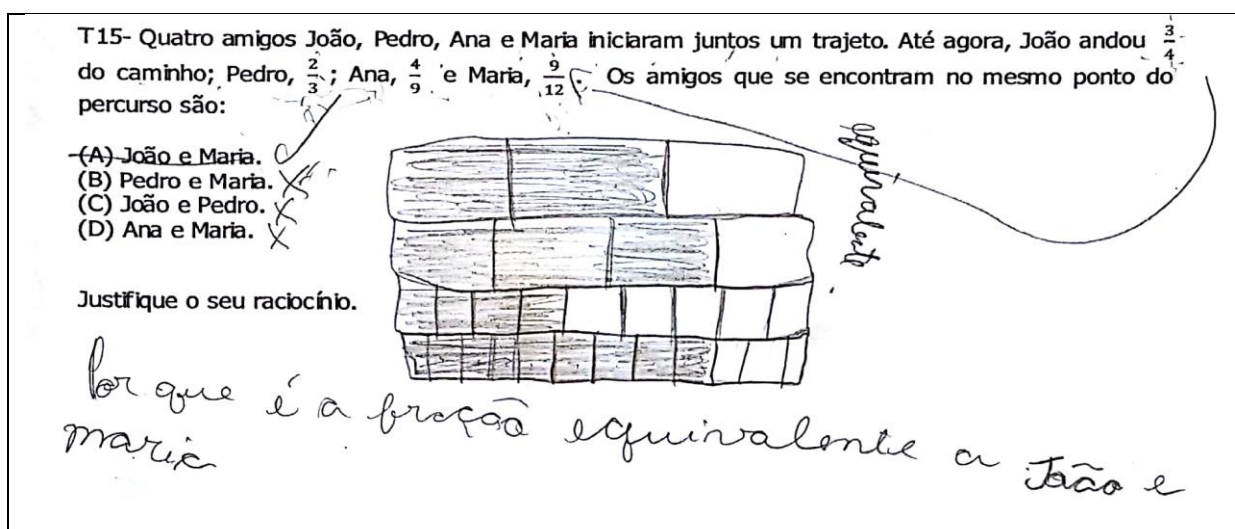 T15- Quatro amigos João, Pedro, Ana e Maria iniciaram juntos um trajeto. Até agora, João andou 3/4
do caminho; Pedro, 2/3; Ana, 4/9 e Maria, 9/12. Os amigos que se encontram no mesmo ponto do
percurso são:
(A) João e Maria.
(B) Pedro e Maria.
(C) João e Pedro.
(D) Ana e Maria.
equivalente
Justifique o seu raciocínio.
Por que é a fração equivalente a João e
maria